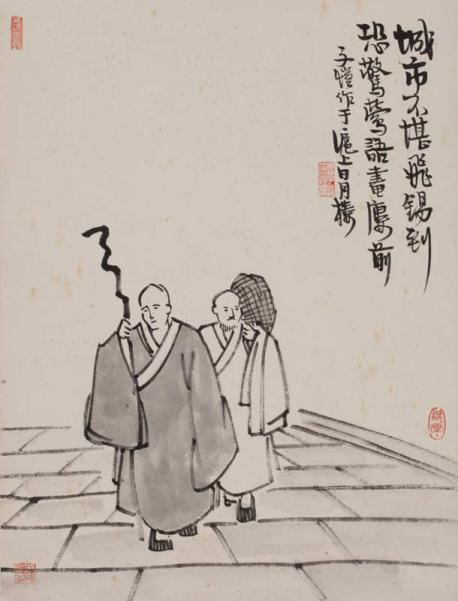 城市不堪飛錫到
恐驚鶯語畫樓前
子愷作于滬上日月樓